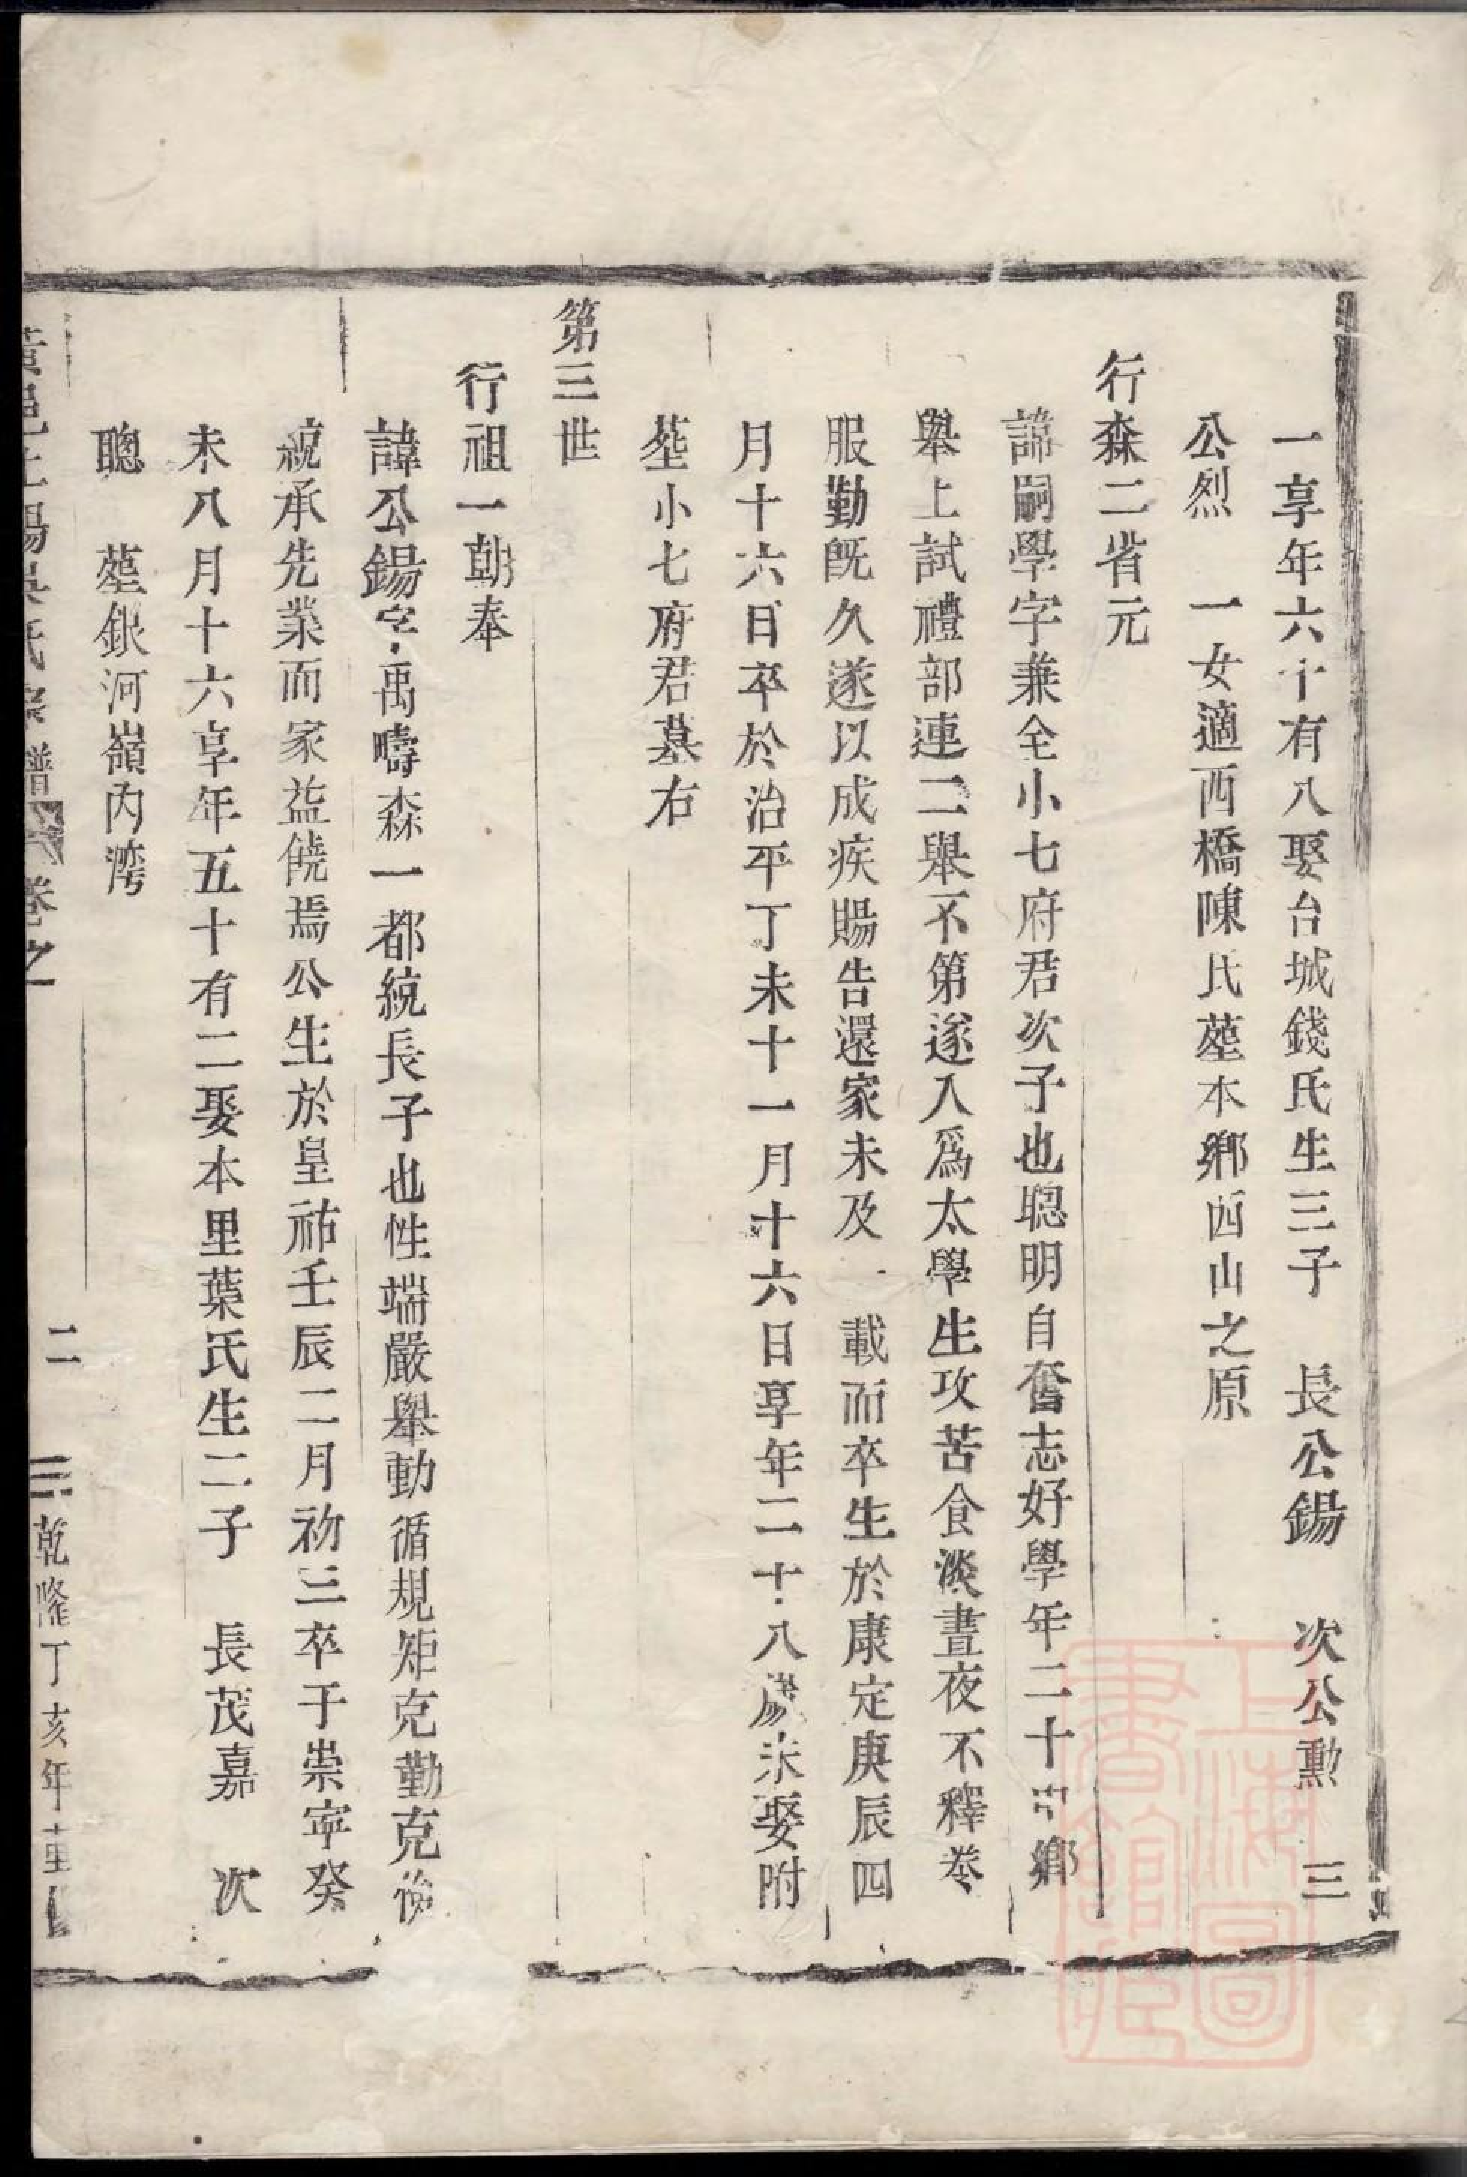 一享年六十有八娶台城錢氏生三子　長公鍚　次公勲　三
公烈　一女適西橋陳氏塟本鄕西山之原
行森二省元
諱嗣學字兼全小七府君次子也聰明自奮志好學年二十中鄉
舉上試禮部連二舉不第遂入爲太學生攻苦食淡晝夜不釋卷
服勤既久遂以成疾賜告還家未及一載而卒生於康定庚辰四
月十六日卒於治平丁未十一月十六日享年二十八歲未娶附
塟小七府君墓右
第三世
行祖一朝奉
諱公鍚字禹疇森一都統長子也性端嚴舉動循規矩克勤克儉
統承先業而家益饒焉公生於皇祐壬辰二月初三卒于崇寧癸
未八月十六享年五十有二娶本里葉氏生二子　長茂嘉　次
聰　塟銀河嶺內湾
氏宗譜　卷之　二　乾隆丁亥年重
上海圖書館藏